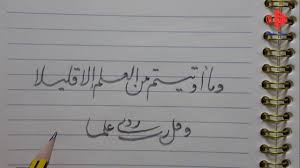 وما أوتيتم من العلم إلا قليلا
وقل رب زدني علما